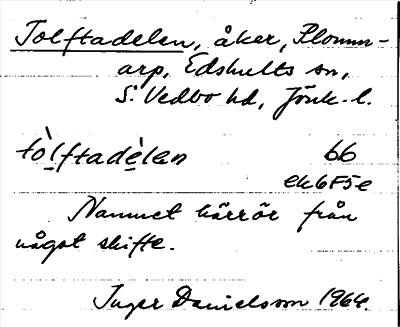 Tolftadelen, åker, Plomm-
arp, Edshults sn,
S. Vedbo hd, Jönk. l.
tòlftadèlen 66
ek 6F5e
Namnet härrör från
något skifte.
Inger Danielsson 1964.